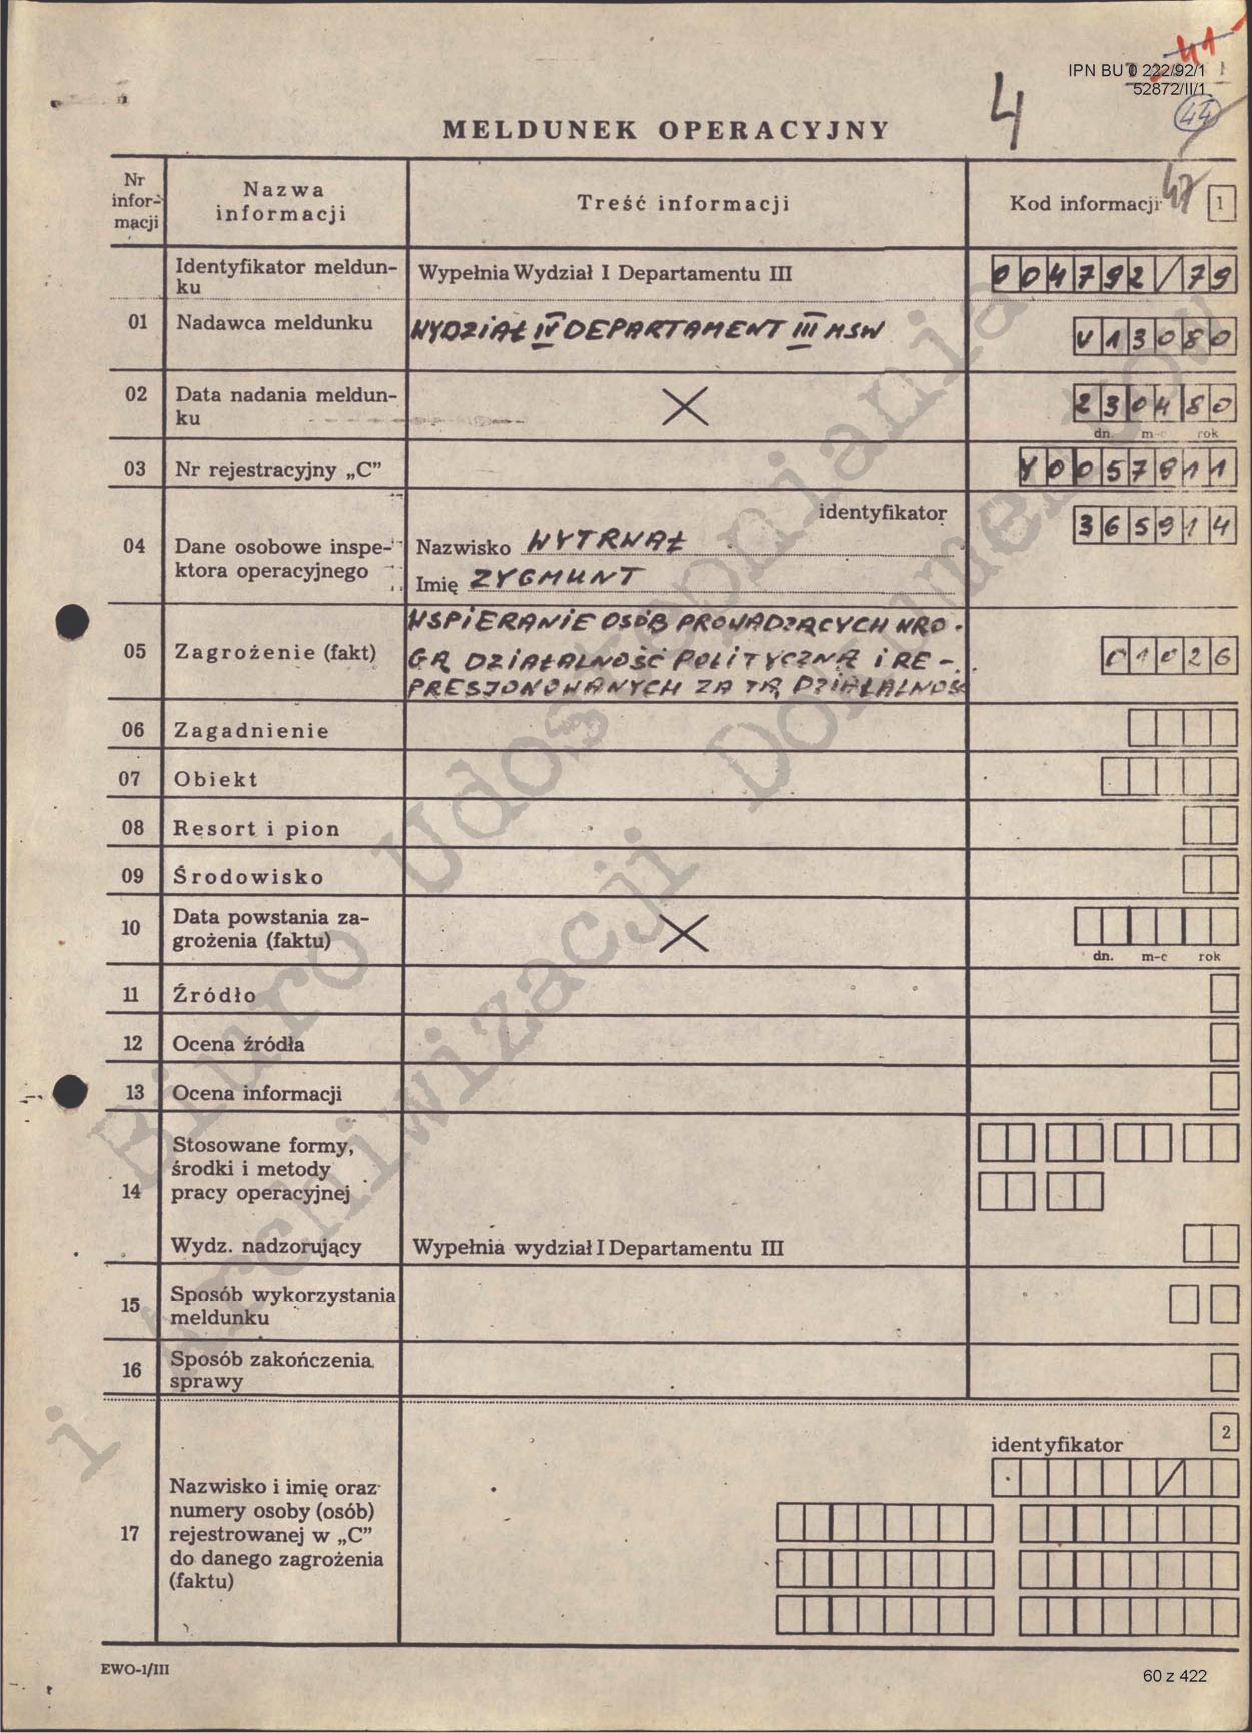 41
IPN BU 0 222/92/1
52872/II/1
44
4
MELDUNEK OPERACYJNY
47
Nr infor-macji
Nazwa informacji
Treść informacji
Kod informacji
1
Identyfikator meldun-
ku
Wypełnia Wydział I Departamentu III
004792/79
01
Nadawca meldunku
WYDZIAŁ IV DEPARTAMENT III MSW
V13080
02
Data nadania meldun-
ku
230480
dn. m-c rok
03
Nr rejestracyjny „C”
Y0057811
04
Dane osobowe inspe-
ktora operacyjnego
identyfikator
365914
Nazwisko WYTRWAŁ
Imię ZYGMUNT
05
Zagrożenie (fakt)
WSPIERANIE OSÓB PROWADZĄCYCH WRO-
GĄ DZIAŁALNOŚĆ POLITYCZNĄ I RE-
PRESJONOWANYCH ZA TĄ DZIAŁALNOŚ
01026
06
Zagadnienie
07
Obiekt
08
Resort i pion
09
Środowisko
10
Data powstania za-
grożenia (faktu)
dn. m-c rok
11
Źródło
12
Ocena źródła
13
Ocena informacji
14
Stosowane formy,
środki i metody
pracy operacyjnej
Wydz. nadzorujący
Wypełnia wydział I Departamentu III
15
Sposób wykorzystania
meldunku
16
Sposób zakończenia
sprawy
2
identyfikator
/
17
Nazwisko i imię oraz
numery osoby (osób)
rejestrowanej w „C”
do danego zagrożenia
(faktu)
EWO-1/III
60 z 422
Biuro Udostępniania
i Archiwizacji Dokumentów